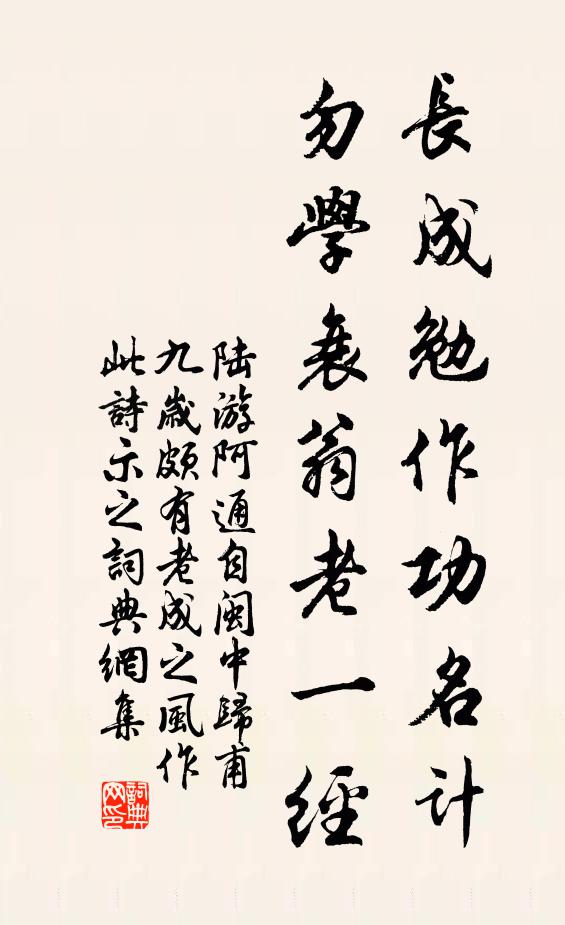 長成勉作功名計
勿學衰翁老一經
陸游阿通自閩中歸甫
九歲頗有老成之風作
此詩示之詞典網集
詞典
网印